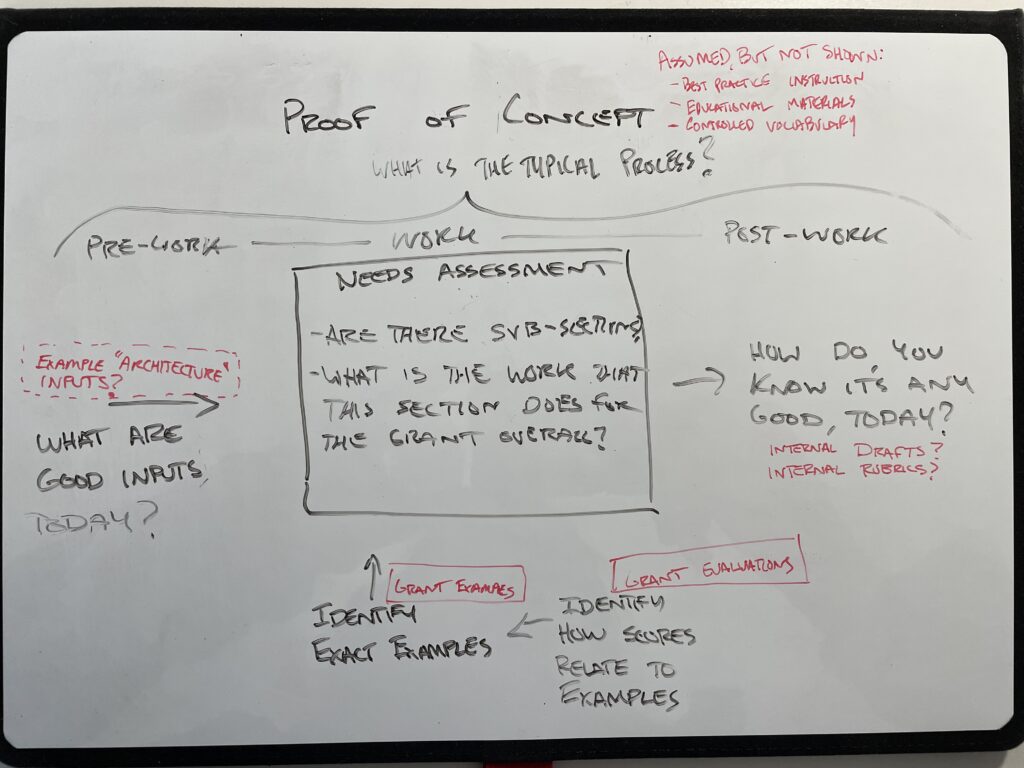 ASSUMED, BUT NOT SHOWN:
- BEST PRACTICE INSTRUCTION
- EDUCATIONAL MATERIALS
- CONTROLLED VOLLABULARY
PROOF OF CONCEPT
WHAT IS THE TYPICAL PROCESS?
PRE-WORK — WORK — POST-WORK
NEEDS ASSESSMENT
- ARE THERE SUB-SECTIONS?
- WHAT IS THE WORK THAT
THIS SECTION DOES FOR
THE GRANT OVERALL?
EXAMPLE "ARCHITECTURE"
INPUTS?
WHAT ARE
GOOD INPUTS,
TODAY?
HOW DO YOU
KNOW IT'S ANY
GOOD, TODAY?
INTERNAL DRAFTS?
INTERNAL RUBRICS?
GRANT EXAMPLES
IDENTIFY
EXACT EXAMPLES
GRANT EVALUATIONS
IDENTIFY
HOW SCORES
RELATE TO
EXAMPLES